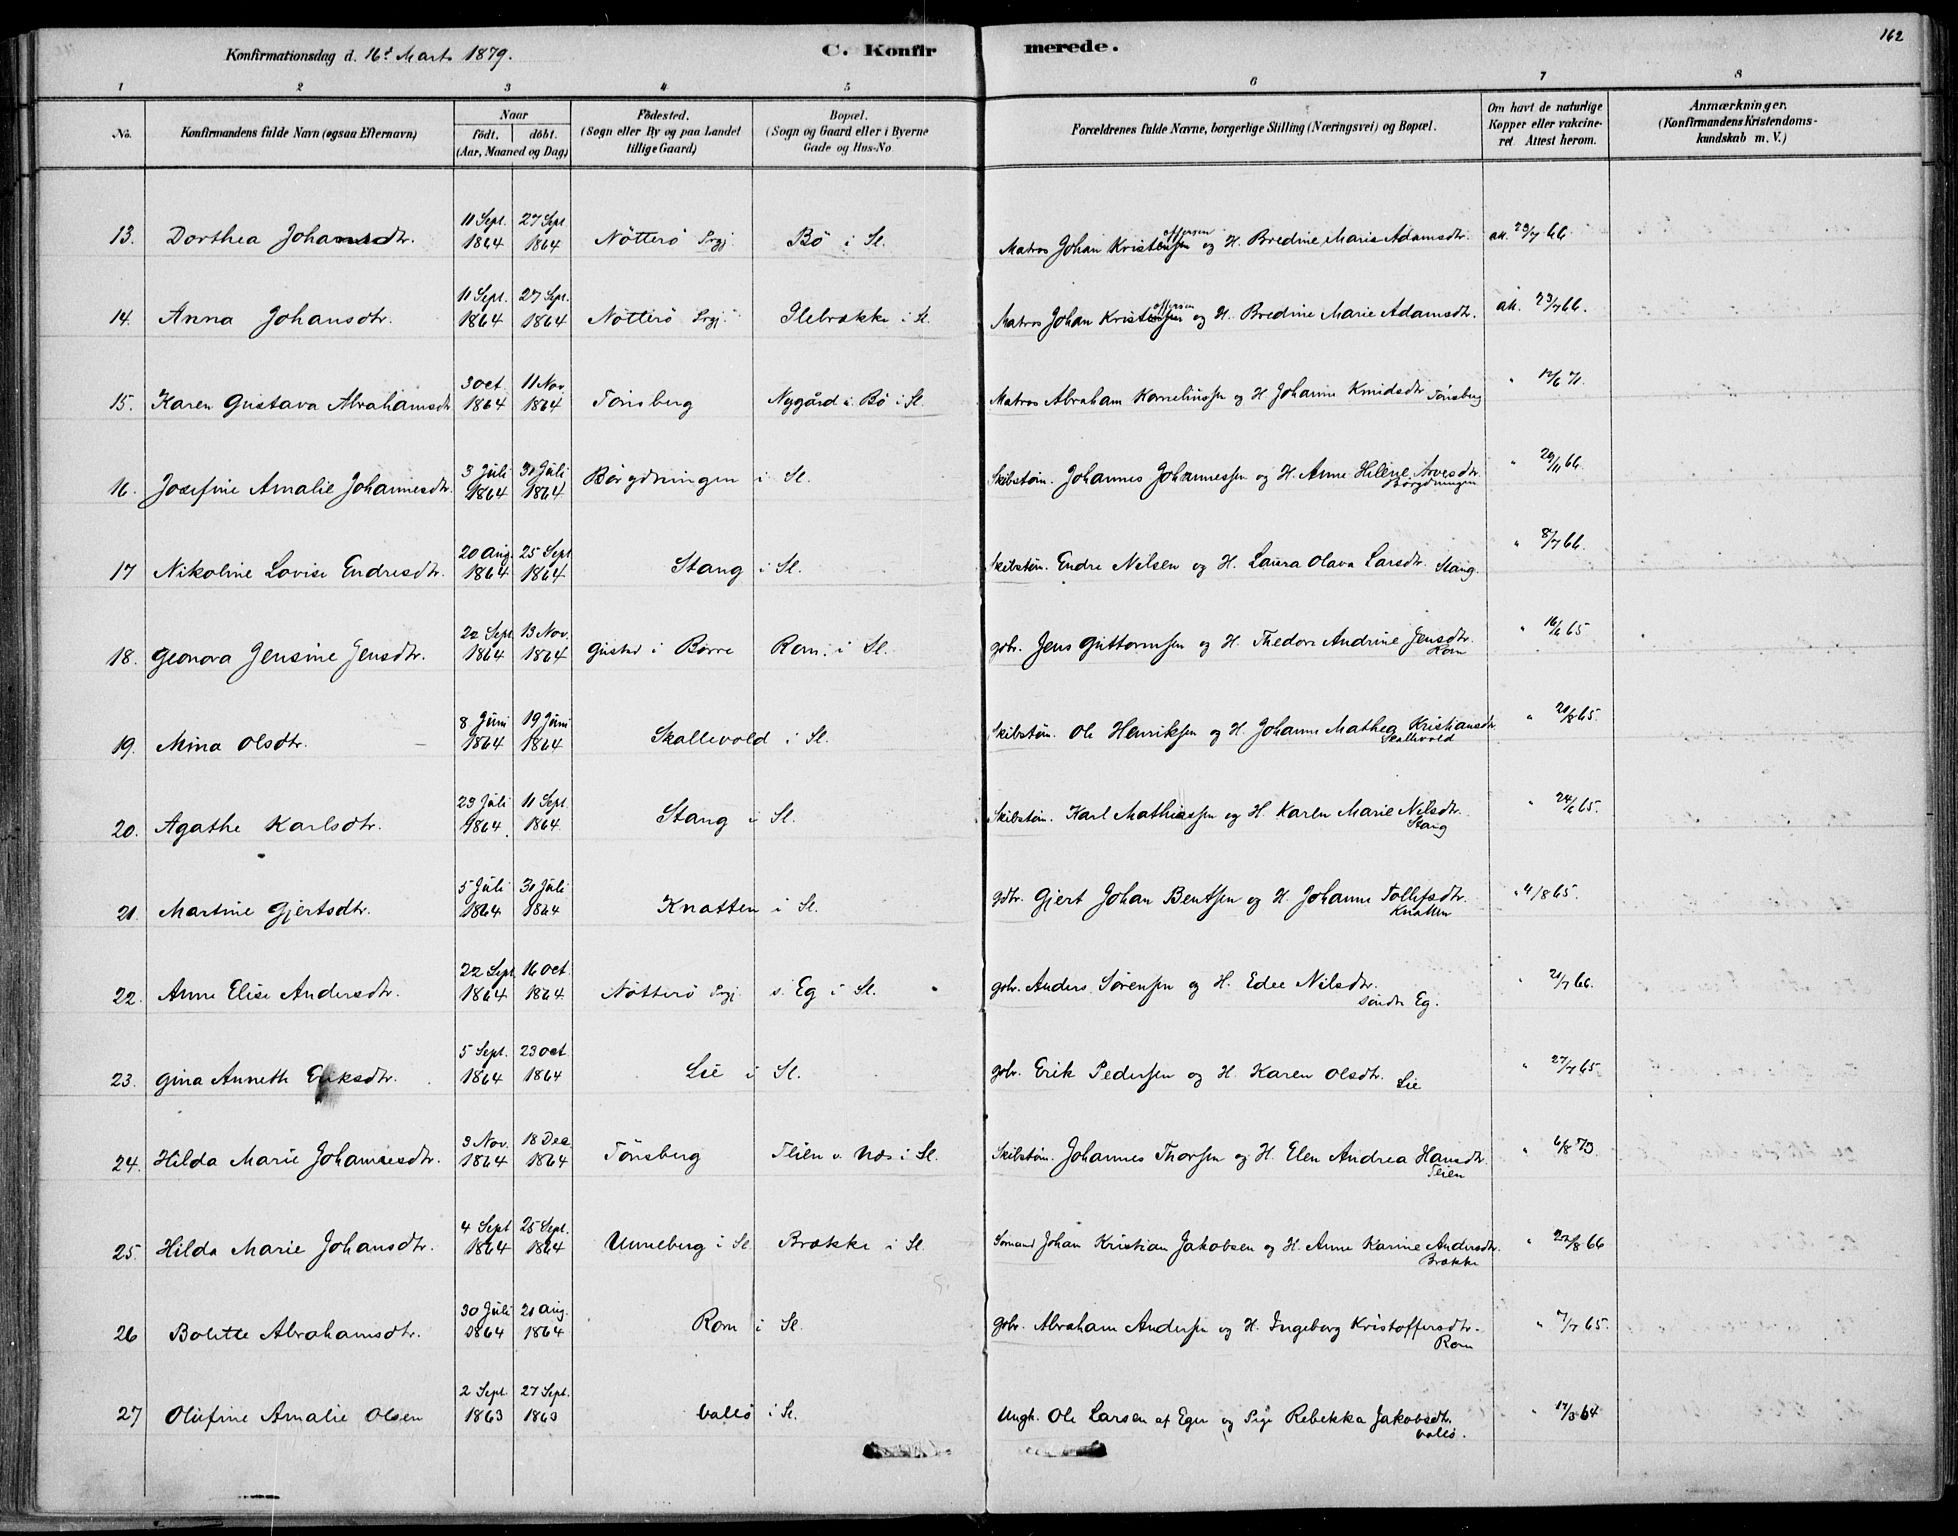 Konfirmationsdag d. 16t Marts 1879.
C. Konfirmerede.
162
1 2 3 4 5 6 7 8
No.
Konfirmandens fulde Navn (ogsaa Efternavn)
Naar
födt. döbt.
(Aar, Maaned og Dag)
Födested.
(Sogn eller By og paa Landet
tillige Gaard)
Bopæl.
(Sogn og Gaard eller i Byerne
Gade og Hus-No.
Forældrenes fulde Navne, borgerlige Stilling (Næringsvei) og Bopæl.
Om havt de naturlige
Kopper eller vakcine-
ret Attest herom.
Anmærkninger.
(Konfirmandens Kristendoms-
kundskab m. V.)
13. Dorthea Johansdtr. 11 Sept. 1864 27 Sept 1864 Nötterö Prgj. Bö i Sl. Matros Johan Kristoffersen og H. Bredine Marie Adamsdtr. att. 23/7 66
14. Anna Johansdtr. 11 Sept. 1864 27 Sept. 1864 Nötterö Prgj. Ilebrække i Sl. Matros Johan Kristoffersen og H. Bredine Marie Adamsdtr. att. 23/7 66.
15. Karen Gustava Abrahamsdtr 3 Oct. 1864 11 Nov 1864 Tönsberg Nygård i Bö i Sl. Matros Abraham Kornelius sen og H Johanne Knudsdtr Tönsberg " 12/6 71.
16. Josefine Amalie Johannesdtr. 3 Juli 1864 31 Juli 1864 Börgdningen i Sl. Skibstöm. Johannes Johannessen og H. Anne Helene Arvesdtr. Börgdningen " 29/11 66.
17 Nikoline Lovise Endresdtr. 20 Aug. 1864 25 Sept 1864 Stang i Sl. Skibstöm. Endre Nilsen og H. Laura Olava Larsdtr. Stang. " 8/7 66.
18. Geonora Jensine Jensdtr. 22 Sept. 1864 13 Nov. 1864 Gustad i Borre Rom. i Sl. gbr. Jens Guttormsen og H. Thedora Andrine Jensdtr. Rom " 16/6 65
19. Mina Olsdtr. 8 Juni 1864 19 Juni 1864 Skallevold i Sl. Skibstöm. Ole Henriksen og H. Johanne Mathea Kristiansdtr Skallevold " 20/8 65.
20. Agathe Karlsdtr. 23 Juli 1864. 11 Sept. 1864. Stang i Sl. Skibstöm. Karl Mathiassen og H. Karen Marie Nilsdtr. Stang " 24/6 65.
21. Martine Gjertsdtr. 5 Juli 1864 31 Juli 1864 Knatten i Sl. gdbr. Gjert Johan Bentsen og H. Johanne Tollefsdtr. Knatten " 4/8 65.
22. Anne Elise Andersdtr. 22 Sept. 1864 16 Oct. 1864 Nötterö Prgj. s. Eg i Sl. gbr. Anders Sörensen og H. Edee Nilsdtr. söndre Eg. " 21/7 66.
23. Gina Anneth Eriksdtr. 5 Sept. 1864 23 Oct 1864 Lie i Sl. gbr. Erik Pedersen og H. Karen Olsdtr. Lie " 27/7 65.
24. Hilda Marie Johannesdtr. 3 Nov. 1864 18 Dec 1864 Tönsberg Teien v. Næs i Sl. Skibstöm. Johannes Thorsen og H. Elen Andrea Hansdtr. Teien " 6/8 73.
25. Hilda Marie Johansdtr. 4 Sept 1864 25 Sept. 1864 Unneberg i Sl. Brække i Sl. Sömand Johan Kristian Jakobsen og H. Anne Karine Andersdtr. Brække " 22/8 66
26 Bolette Abrahamsdtr. 30 Juli 1864 21 Aug. 1864 Rom i Sl. gbr. Abraham Andersen og H. Ingeborg Kristoffersdtr. Rom " 7/7 65.
27 Olufine Amalie Olsen 2 Sept. 1863 27 Sept. 1863 Vallö i Sl. Ungk. Ole Larsen af Eger og Pige Rebekka Jakobsdtr. Vallö. " 17/3 64